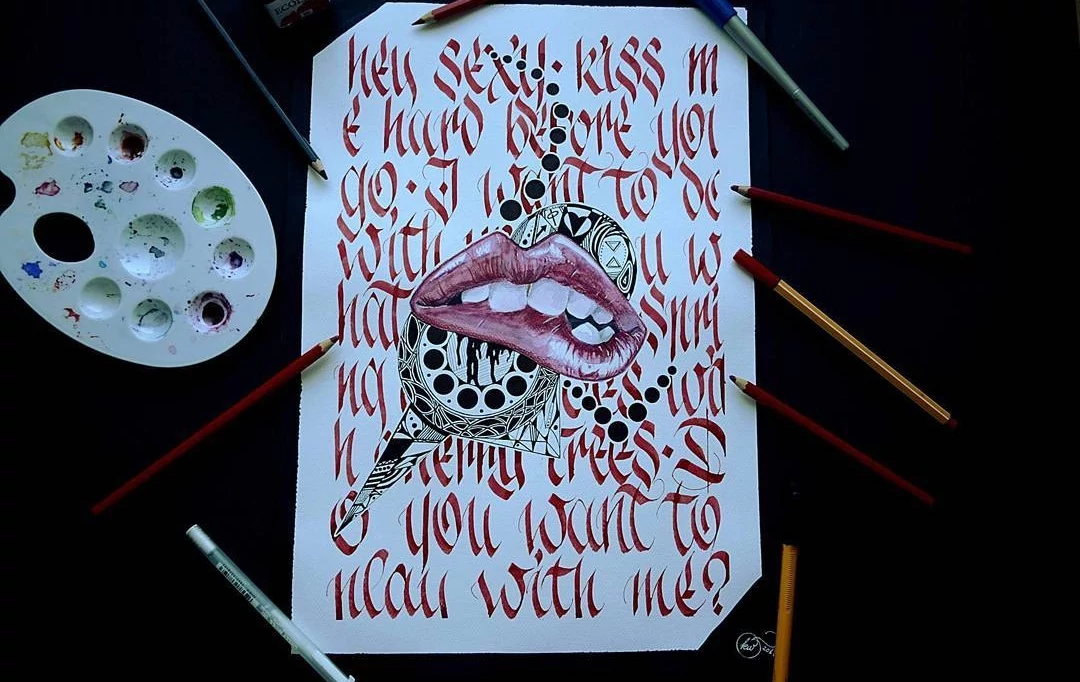 hey sexy. kiss m
e hard before you
go. I want to do
with u w
hat spri
ng does wit
h cherry trees. D
o you want to
play with me?